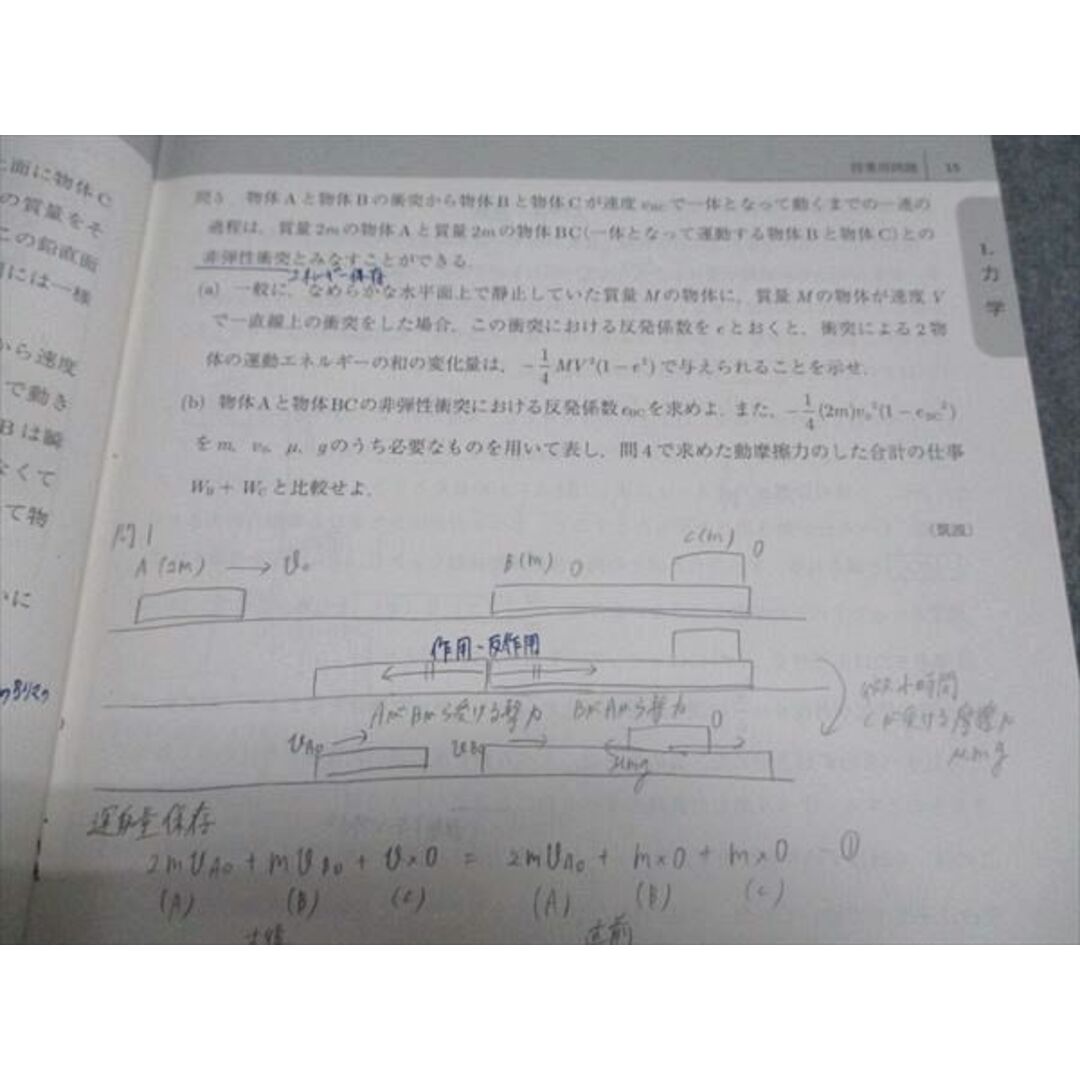 授業用問題 15
上面に物体C
の質量をそ
この鉛直面
には一様
から速度
で動き
Bは瞬
なくて
て物
いに
1.
力
学
問5 物体Aと物体Bの衝突から物体Bと物体Cが速度vBCで一体となって動くまでの一連の
過程は,質量2mの物体Aと質量2mの物体BC(一体となって運動する物体Bと物体C)との
非弾性衝突とみなすことができる.
(a) 一般に,なめらかな水平面上で静止していた質量Mの物体に,質量Mの物体が速度V
で一直線上の衝突をした場合,この衝突における反発係数をeとおくと,衝突による2物
体の運動エネルギーの和の変化量は,−1/4 MV²(1−e²)で与えられることを示せ.
(b) 物体Aと物体BCの非弾性衝突における反発係数eBCを求めよ.また,−1/4(2m)v₀²(1−eBC²)
をm,v₀,μ,gのうち必要なものを用いて表し,問4で求めた動摩擦力のした合計の仕事
WB+WCと比較せよ.
(筑波)
問1
A(2m) → v₀
B(m) 0
C(m) 0
作用-反作用
AがBから受ける撃力 BがAから撃力
0
μmg
微小時間
Cが受ける摩擦力
μmg
運動量保存
2mvA0 + mvB0 + v×0 = 2mvA0 + m×0 + m×0 −①
(A) (B) (C) (A) (B) (C)
直前